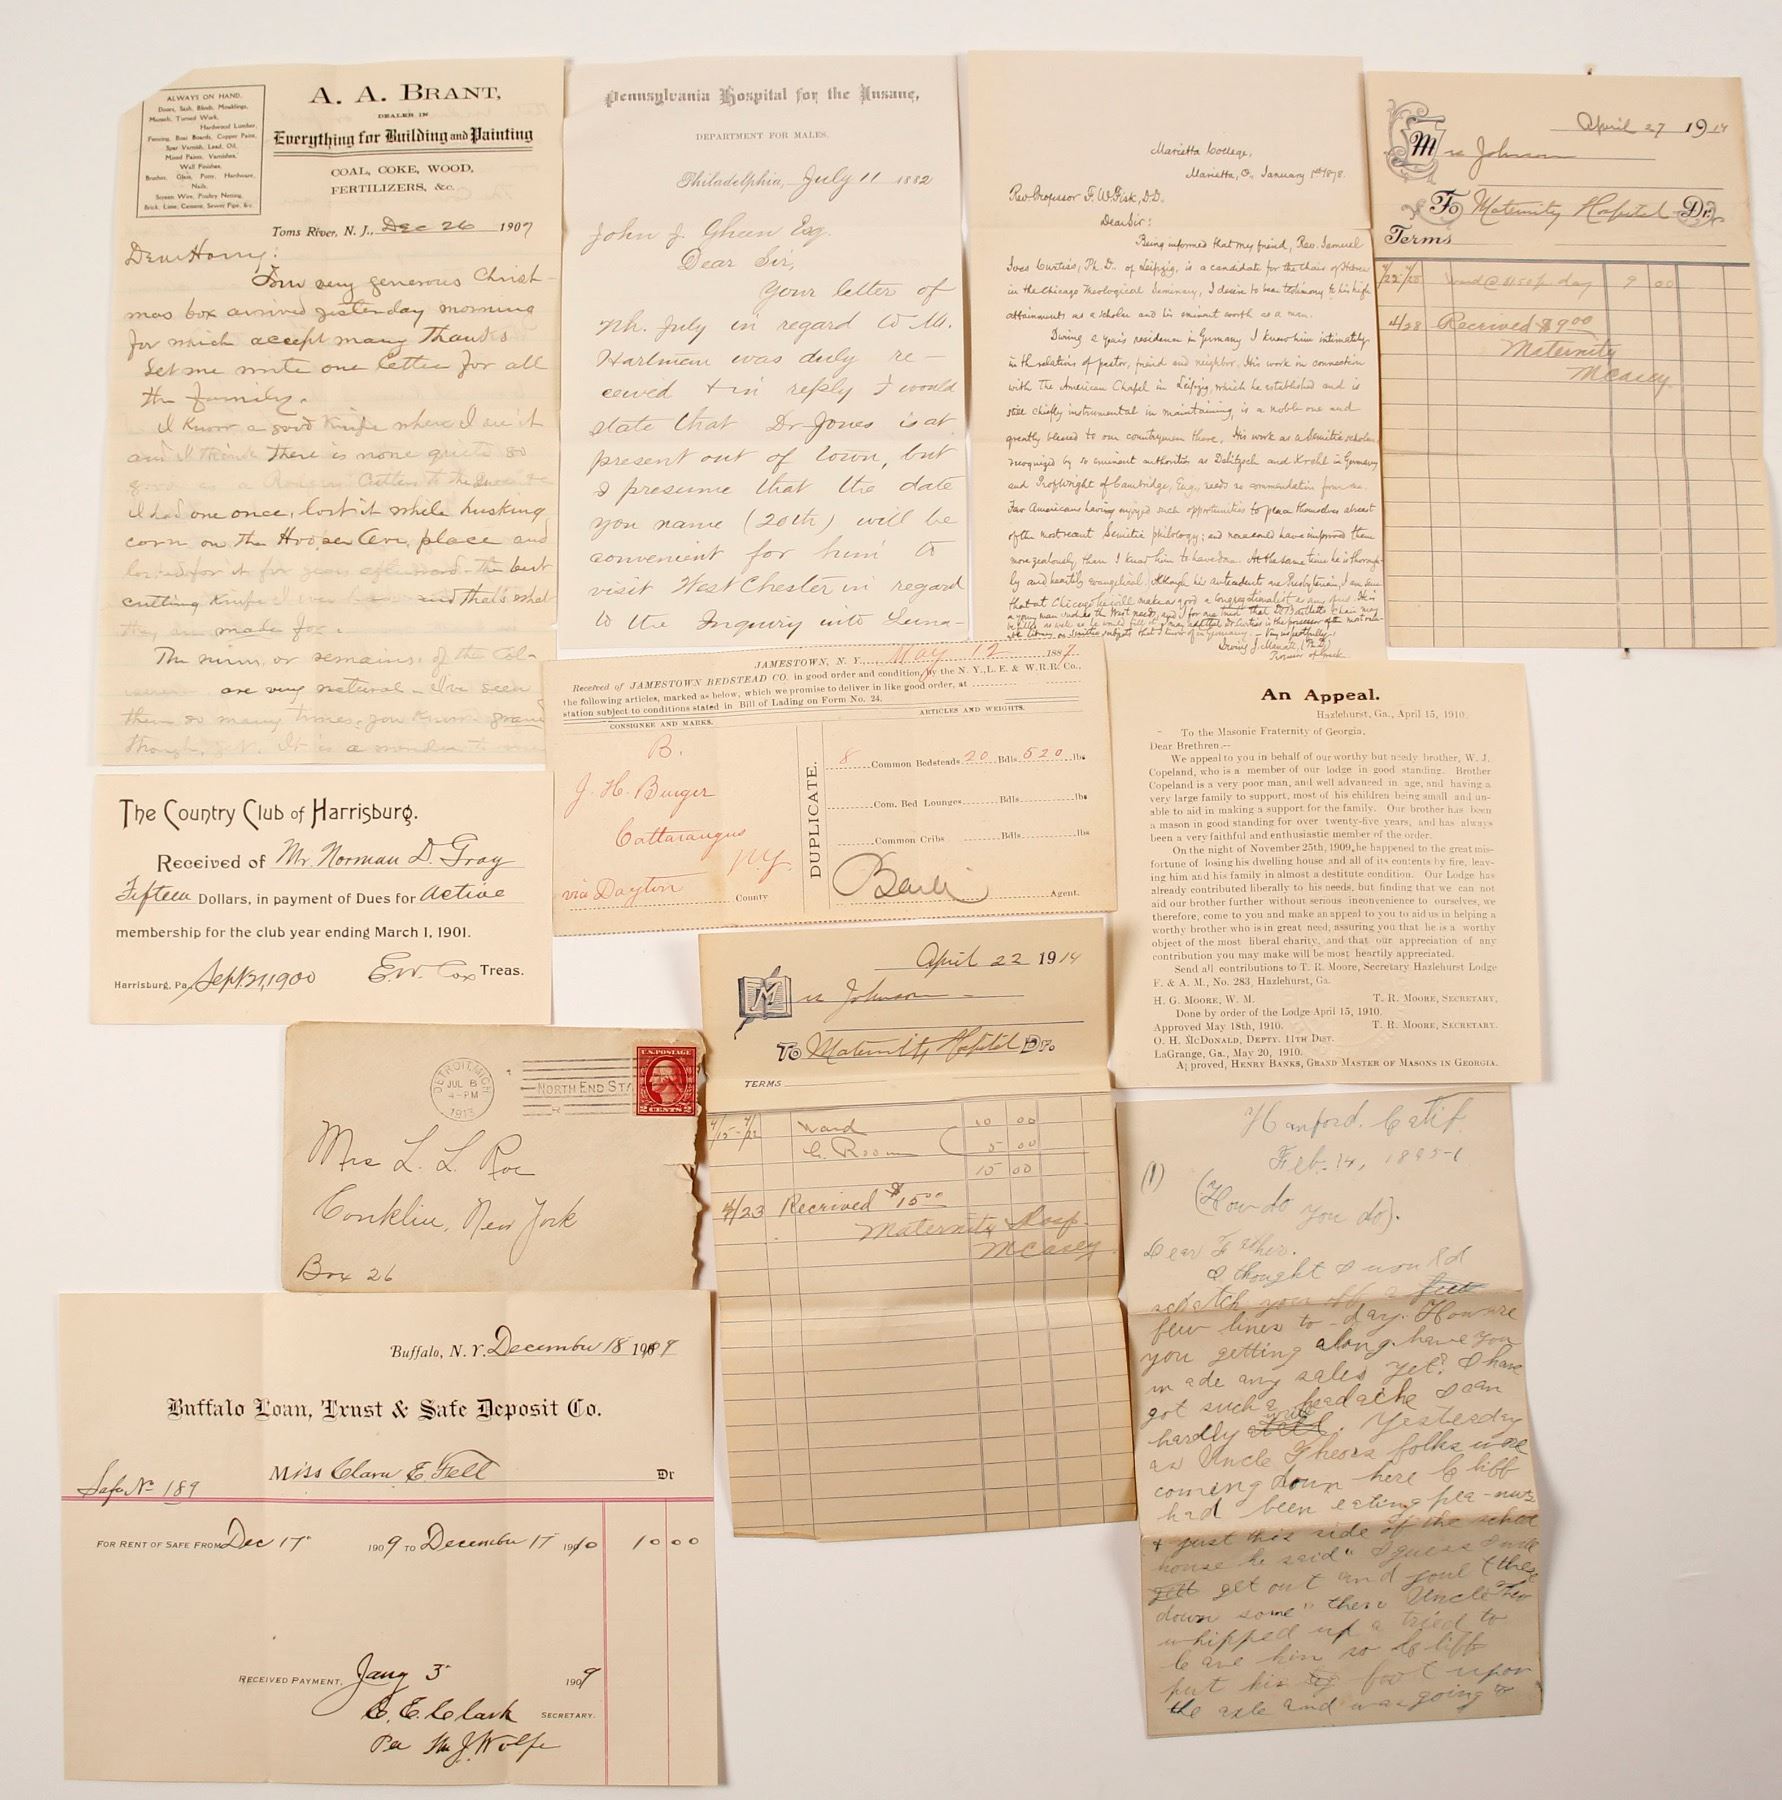 ALWAYS ON HAND.
Doors, Sash, Blinds, Mouldings,
Mantels, Turned Work,
Hardwood Lumber,
Fencing, Boat Boards, Copper Paint,
Spar Varnish, Lead, Oil,
Mixed Paints, Varnishes,
Wall Finishes,
Brushes, Glass, Putty, Hardware,
Nails,
Screen Wire, Poultry Netting,
Brick, Lime, Cement, Sewer Pipe, &c.
A. A. BRANT,
DEALER IN
Everything for Building and Painting
COAL, COKE, WOOD,
FERTILIZERS, &c.
Toms River, N. J., Dec 26 1907
Dear Harry:
Your very generous Christ-
mas box arrived yesterday morning
for which accept many thanks
Let me write one letter for all
the family.
I know a good Knife where I see it
and I think there is none quite so
good as a Cutter to the
I had one once, lost it while husking
corn on the Hooper Ave. place and
looked for it for years afterward the best
cutting Knife I ever and that's what
they are made for.
The ruins, or remains, of the Col-
are very natural - I've seen
them so many times, you know grand
though, yet. It is a wonder to me
Pennsylvania Hospital for the Insane,
DEPARTMENT FOR MALES.
Philadelphia, July 11 1882
John J. Gheen Esq.
Dear Sir,
Your letter of
7th. July in regard to Mr.
Hartman was duly re-
ceived & in reply I would
state that Dr Jones is at
present out of town, but
I presume that the date
you name (20th) will be
convenient for him to
visit West Chester in regard
to the Inquiry into Luna-
Marietta College,
Marietta, O., January 1st 1878.
Rev. Professor F. W. Fisk, D.D.
Dear Sir:
Being informed that my friend, Rev. Samuel
Ives Curtiss, Ph. D., of Leipzig, is a candidate for the chair of Hebrew
in the Chicago Theological Seminary, I desire to bear testimony to his high
attainments as a scholar and his eminent worth as a man.
During a year's residence in Germany I knew him intimately
in the relations of pastor, friend and neighbor. His work in connection
with the American Chapel in Leipzig, which he established and is
still chiefly instrumental in maintaining, is a noble one and
greatly blessed to our countrymen there. His work as a Semitic scholar,
recognized by so eminent authorities as Delitzsch and Krehl in Germany
and Prof Wright of Cambridge, Eng., needs no commendation from me.
Few Americans having enjoyed such opportunities to place themselves abreast
of the most recent Semitic philology; and none could have improved them
more zealously than I knew him to have done. At the same time he is thorough-
ly and heartily evangelical. Although his antecedents are Presbyterian, I am sure
that at Chicago he will make as good a Congregationalist as any of us. He is
a young man such as the West needs, and I for one trust that Dr Bartlett's chair may
be filled as well as he would fill it. I may add that Dr Curtiss is the possessor of the most valu-
able library on Semitic subjects that I know of in Germany. - Very respectfully,
Irving J. Manatt, (Ph.D.)
Professor of Greek.
April 27 1914
Mrs Johnson
To Maternity Hospital Dr.
Terms
4/22 4/28 Ward @ $1.50 p day 9 00
4/28 Received $9.00
Maternity
McCasey
JAMESTOWN, N. Y., May 12 1887.
Received of JAMESTOWN BEDSTEAD CO. in good order and condition, by the N. Y., L. E. & W. R. R. Co.,
the following articles, marked as below, which we promise to deliver in like good order, at
station subject to conditions stated in Bill of Lading on Form No. 24.
CONSIGNEE AND MARKS.
ARTICLES AND WEIGHTS.
B.
J. H. Burger
Cattaraugus
N.Y.
via Dayton County
DUPLICATE.
8 Common Bedsteads 20 Bdls 520 lbs
Com. Bed Lounges Bdls lbs
Common Cribs Bdls lbs
Agent.
An Appeal.
Hazlehurst, Ga., April 15, 1910.
To the Masonic Fraternity of Georgia.
Dear Brethren.--
We appeal to you in behalf of our worthy but needy brother, W. J.
Copeland, who is a member of our lodge in good standing. Brother
Copeland is a very poor man, and well advanced in age, and having a
very large family to support, most of his children being small and un-
able to aid in making a support for the family. Our brother has been
a mason in good standing for over twenty-five years, and has always
been a very faithful and enthusiastic member of the order.
On the night of November 25th, 1909, he happened to the great mis-
fortune of losing his dwelling house and all of its contents by fire, leav-
ing him and his family in almost a destitute condition. Our Lodge has
already contributed liberally to his needs, but finding that we can not
aid our brother further without serious inconvenience to ourselves, we
therefore, come to you and make an appeal to you to aid us in helping a
worthy brother who is in great need, assuring you that he is a worthy
object of the most liberal charity, and that our appreciation of any
contribution you may make will be most heartily appreciated.
Send all contributions to T. R. Moore, Secretary Hazlehurst Lodge
F. & A. M., No. 283, Hazlehurst, Ga.
H. G. MOORE, W. M. T. R. MOORE, SECRETARY.
Done by order of the Lodge April 15, 1910.
Approved May 18th, 1910. T. R. MOORE, SECRETARY.
O. H. MCDONALD, DEPTY. 11TH DIST.
LaGrange, Ga., May 20, 1910.
Approved, HENRY BANKS, GRAND MASTER OF MASONS IN GEORGIA.
The Country Club of Harrisburg.
Received of Mr. Norman D. Gray
Fifteen Dollars, in payment of Dues for Active
membership for the club year ending March 1, 1901.
Harrisburg, Pa., Sept. 21, 1900 E. W. Cox Treas.
April 22 1914
Mrs Johnson
To Maternity Hospital Dr.
TERMS
4/15-4/22 Ward 10 00
C. Room 5 00
15 00
4/23 Received $15.00
Maternity Hosp.
McCasey
DETROIT, MICH.
JUL 8
4-PM
1913
NORTH END STA
U.S. POSTAGE
2 CENTS 2
Mrs L. L. Roe
Conklin, New York
Box 26
Hanford. Calif.
Feb. 14, 1895-
(1) (How do you do).
Dear Father.
I thought I would
scratch you off a
few lines to-day. How are
you getting along. have you
made any sales yet? I have
got such a headache I can
hardly write. Yesterday
as Uncle Theo's folks were
coming down here Cliff
had been eating pea-nuts
& just this side of the school
house he said "I guess I will
get out and
down some" then Uncle Theo
whipped up & tried to
leave him so Cliff
put his foot upon
the axle and was going to
Buffalo, N. Y. December 18 1909
Buffalo Loan, Trust & Safe Deposit Co.
Miss Clara E Felt Dr
Safe No 189
FOR RENT OF SAFE FROM Dec 17" 1909 TO December 17 1910 10 00
RECEIVED PAYMENT, Jany 3" 1909
C. E. Clark SECRETARY.
Per Wm J. Wolfe